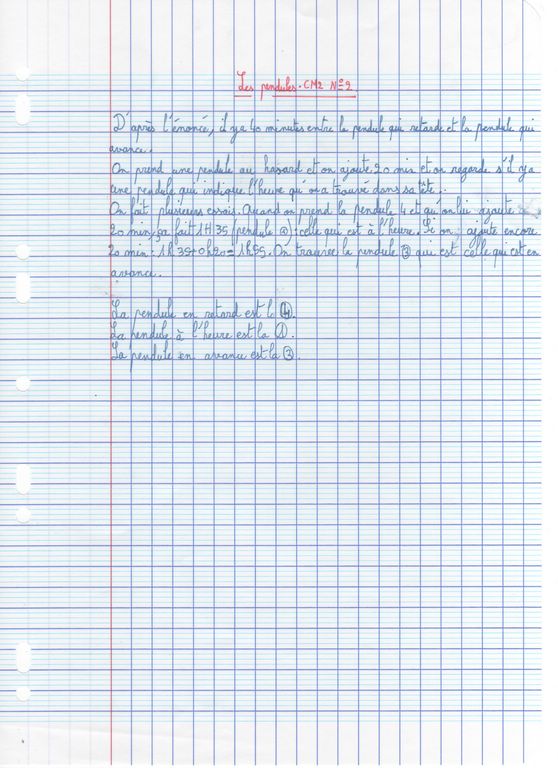 Les pendules. CM2 N°2
D'après l'énoncé, il y a 40 minutes entre la pendule qui retarde et la pendule qui
avance.
On prend une pendule au hasard et on ajoute 20 min et on regarde s'il y a
une pendule qui indique l'heure qu'on a trouvé dans sa
On fait plusieurs essais. Quand on prend la pendule 4 et qu'on lui ajoute
20 min, ça fait 1H 35 (pendule ①): celle qui est à l'heure. Si on ajoute encore
20 min: 1h 35 + 0h20 = 1h55. On trouve la pendule ③ qui est celle qui est en
avance.
La pendule en retard est la ④.
La pendule à l'heure est la ①.
La pendule en avance est la ③.